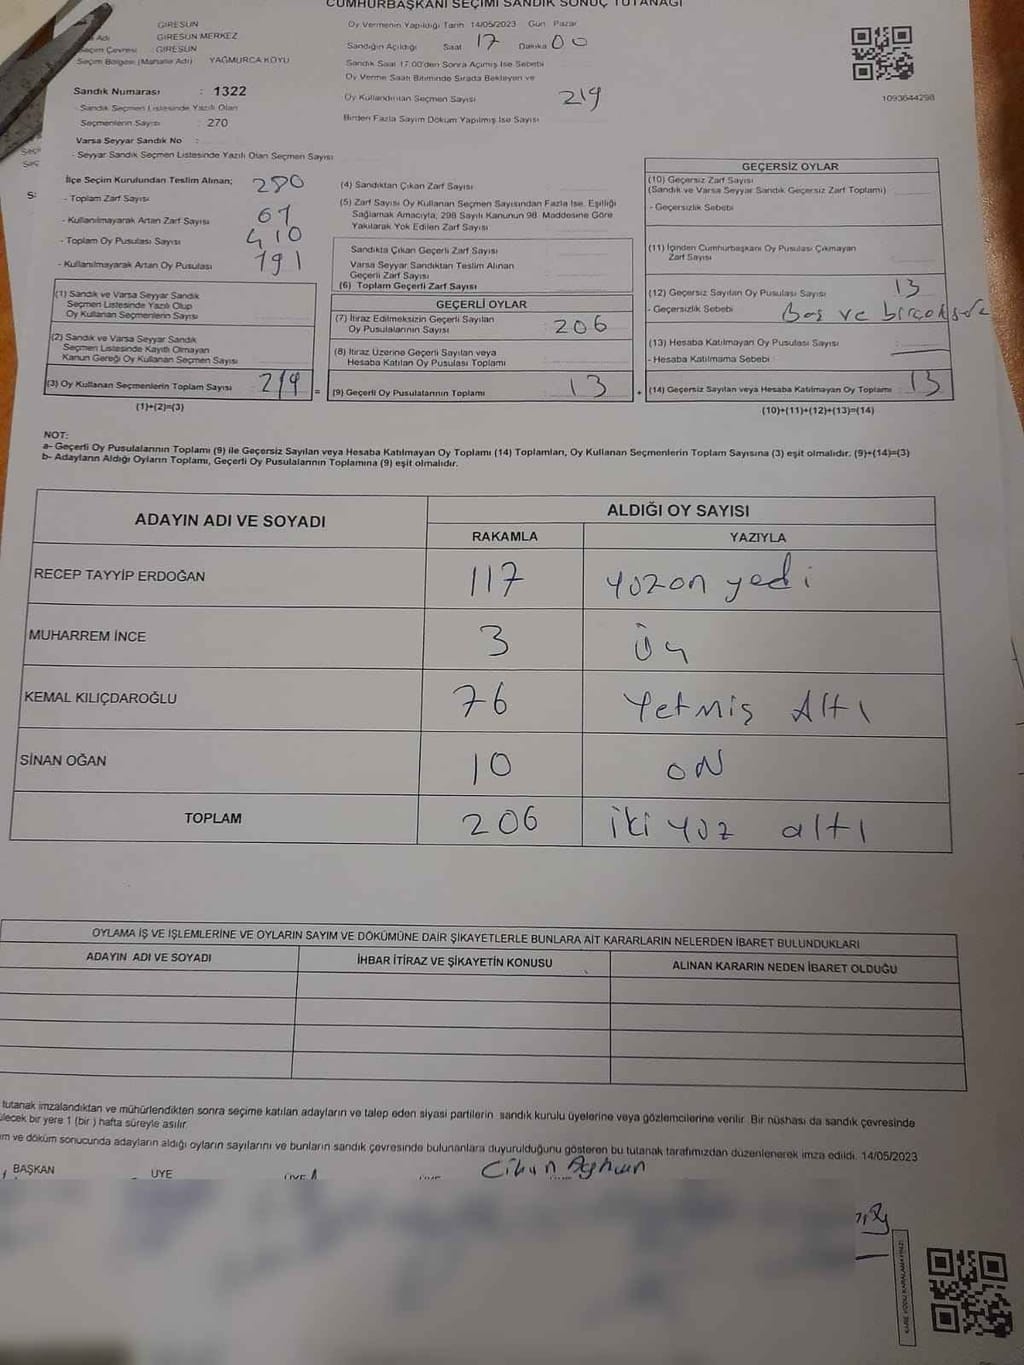 CUMHURBAŞKANI SEÇİMİ SANDIK SONUÇ TUTANAĞI
GİRESUN
Adı GİRESUN MERKEZ
Seçim Çevresi : GİRESUN
Seçim Bölgesi (Mahalle Adı) YAĞMURCA KÖYÜ
Sandık Numarası : 1322
- Sandık Seçmen Listesinde Yazılı Olan
Seçmenlerin Sayısı : 270
Varsa Seyyar Sandık No :
- Seyyar Sandık Seçmen Listesinde Yazılı Olan Seçmen Sayısı
Oy Vermenin Yapıldığı Tarih 14/05/2023 Gün Pazar
Sandığın Açıldığı Saat 17 Dakika 00
Sandık Saat 17:00'den Sonra Açılmış İse Sebebi
Oy Verme Saati Bitiminde Sırada Bekleyen ve
Oy Kullandırılan Seçmen Sayısı 219
Birden Fazla Sayım Döküm Yapılmış İse Sayısı
1093644298
İlçe Seçim Kurulundan Teslim Alınan; 280
- Toplam Zarf Sayısı
- Kullanılmayarak Artan Zarf Sayısı 61
- Toplam Oy Pusulası Sayısı 410
- Kullanılmayarak Artan Oy Pusulası 191
(1) Sandık ve Varsa Seyyar Sandık
Seçmen Listesinde Yazılı Olup
Oy Kullanan Seçmenlerin Sayısı
(2) Sandık ve Varsa Seyyar Sandık
Seçmen Listesinde Kayıtlı Olmayan
Kanun Gereği Oy Kullanan Seçmen Sayısı
(3) Oy Kullanan Seçmenlerin Toplam Sayısı 219 =
(1)+(2)=(3)
(4) Sandıktan Çıkan Zarf Sayısı
(5) Zarf Sayısı Oy Kullanan Seçmen Sayısından Fazla İse, Eşitliği
Sağlamak Amacıyla, 298 Sayılı Kanunun 98. Maddesine Göre
Yakılarak Yok Edilen Zarf Sayısı
Sandıkta Çıkan Geçerli Zarf Sayısı
Varsa Seyyar Sandıktan Teslim Alınan
Geçerli Zarf Sayısı
(6) Toplam Geçerli Zarf Sayısı
GEÇERLİ OYLAR
(7) İtiraz Edilmeksizin Geçerli Sayılan
Oy Pusulalarının Sayısı 206
(8) İtiraz Üzerine Geçerli Sayılan veya
Hesaba Katılan Oy Pusulası Toplamı
(9) Geçerli Oy Pusulalarının Toplamı 13 +
GEÇERSİZ OYLAR
(10) Geçersiz Zarf Sayısı
(Sandık ve Varsa Seyyar Sandık Geçersiz Zarf Toplamı)
- Geçersizlik Sebebi
(11) İçinden Cumhurbaşkanı Oy Pusulası Çıkmayan
Zarf Sayısı
(12) Geçersiz Sayılan Oy Pusulası Sayısı 13
- Geçersizlik Sebebi Boş ve birçok
(13) Hesaba Katılmayan Oy Pusulası Sayısı
- Hesaba Katılmama Sebebi
(14) Geçersiz Sayılan veya Hesaba Katılmayan Oy Toplamı 13
(10)+(11)+(12)+(13)=(14)
NOT:
a- Geçerli Oy Pusulalarının Toplamı (9) ile Geçersiz Sayılan veya Hesaba Katılmayan Oy Toplamı (14) Toplamları, Oy Kullanan Seçmenlerin Toplam Sayısına (3) eşit olmalıdır. (9)+(14)=(3)
b- Adayların Aldığı Oyların Toplamı, Geçerli Oy Pusulalarının Toplamına (9) eşit olmalıdır.
ADAYIN ADI VE SOYADI
ALDIĞI OY SAYISI
RAKAMLA YAZIYLA
RECEP TAYYİP ERDOĞAN 117 yüzon yedi
MUHARREM İNCE 3 Üç
KEMAL KILIÇDAROĞLU 76 Yetmiş Altı
SİNAN OĞAN 10 ON
TOPLAM 206 iki yüz altı
OYLAMA İŞ VE İŞLEMLERİNE VE OYLARIN SAYIM VE DÖKÜMÜNE DAİR ŞİKAYETLERLE BUNLARA AİT KARARLARIN NELERDEN İBARET BULUNDUKLARI
ADAYIN ADI VE SOYADI İHBAR İTİRAZ VE ŞİKAYETİN KONUSU ALINAN KARARIN NEDEN İBARET OLDUĞU
tutanak imzalandıktan ve mühürlendikten sonra seçime katılan adayların ve talep eden siyasi partilerin sandık kurulu üyelerine veya gözlemcilerine verilir. Bir nüshası da sandık çevresinde
ülecek bir yere 1 (bir) hafta süreyle asılır.
ım ve döküm sonucunda adayların aldığı oyların sayılarını ve bunların sandık çevresinde bulunanlara duyurulduğunu gösteren bu tutanak tarafımızdan düzenlenerek imza edildi. 14/05/2023
BAŞKAN ÜYE